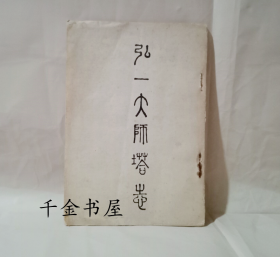 弘一大师塔志
千金书屋